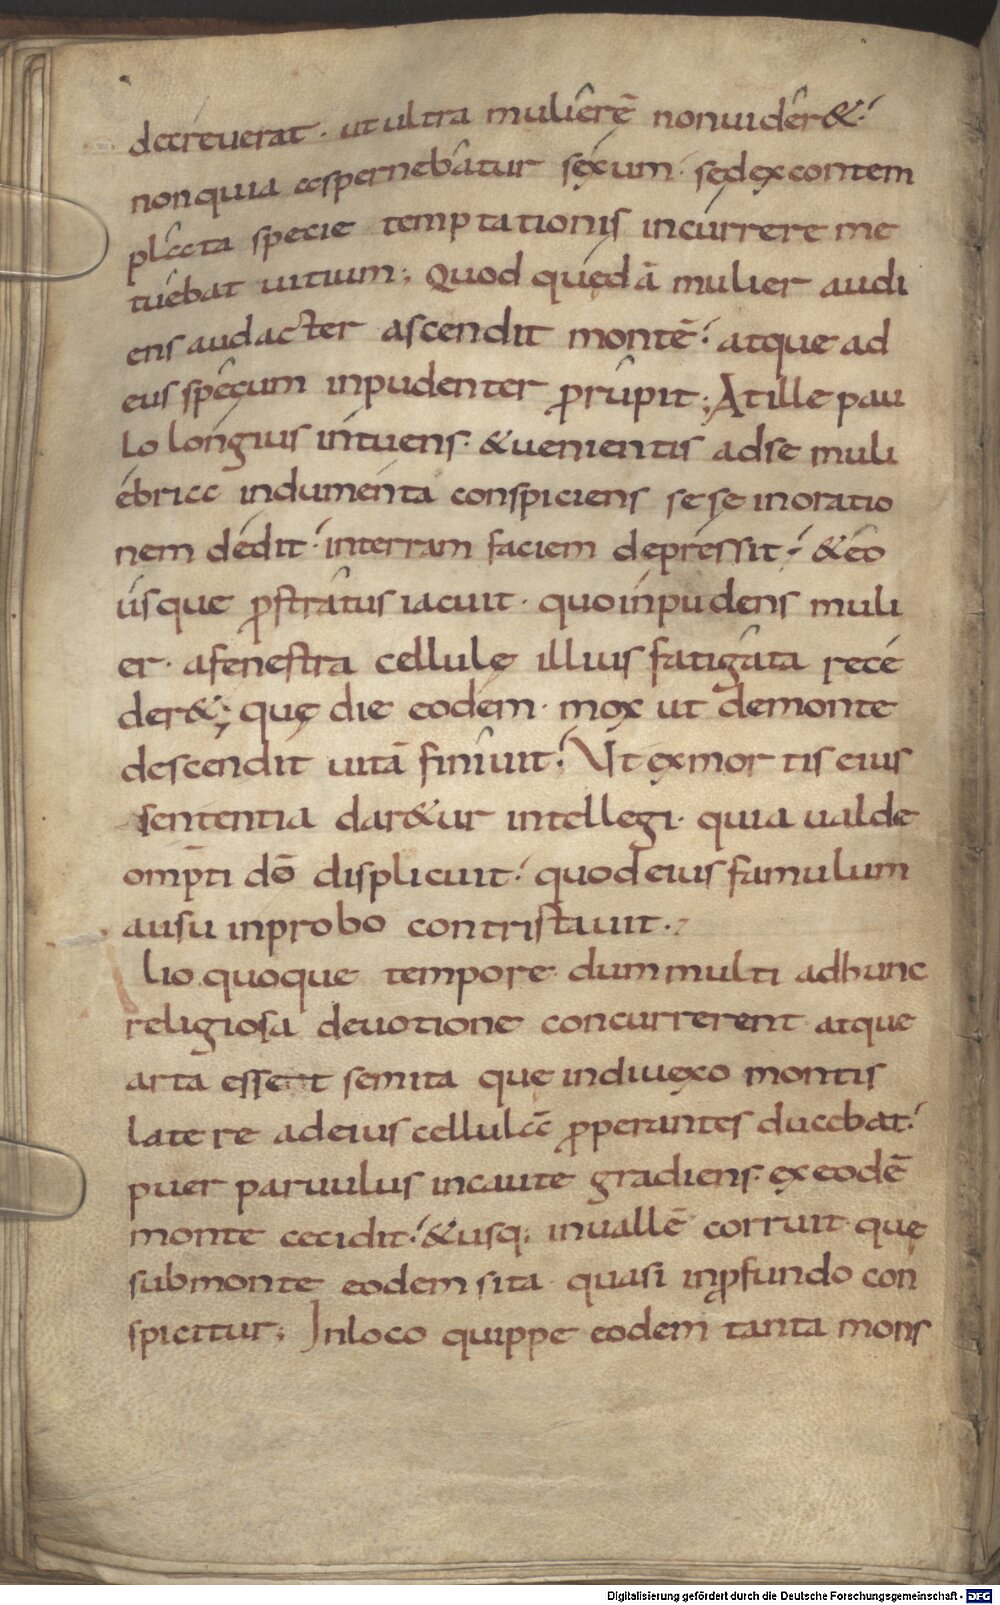 decreuerat · ut ultra mulierē non uider&·
non quia aspernebatur sexum · sed ex contem
plata specie temptationis incurrere me
tuebat uitium; Quod quędā mulier audi
ens audacter ascendit montē· atque ad
eus specum inpudenter ꝓrupit; At ille pau
lo longius intuens · & uenientis ad se muli
ebria indumenta conspiciens sese in oratio
nem dedit · in terram faciem depressit · & eo
usque ꝓstratus iacuit · quo inpudens muli
er · a fenestra cellulę illius fatigata rece
der&; quę die eodem · mox ut de monte
descendit uitā finiuit · Ut ex mortis eius
sententia dar&ur intellegi · quia ualde
omp̄ti dō displicuit · quod eius famulum
ausu inprobo contristauit ·
lio quoque tempore · dum multi ad hunc
religiosa deuotione concurrerent atque
arta esset semita quę in diuexo montis
latere ad eius cellulā ꝓperantes ducebat·
puer paruulus incaute gradiens · ex eodē
monte cecidit · & usq; in uallē corruit quę
sub monte eodem sita · quasi in ꝓfundo con
spicitur; In loco quippe eodem tanta mons
Digitalisierung gefördert durch die Deutsche Forschungsgemeinschaft - DFG